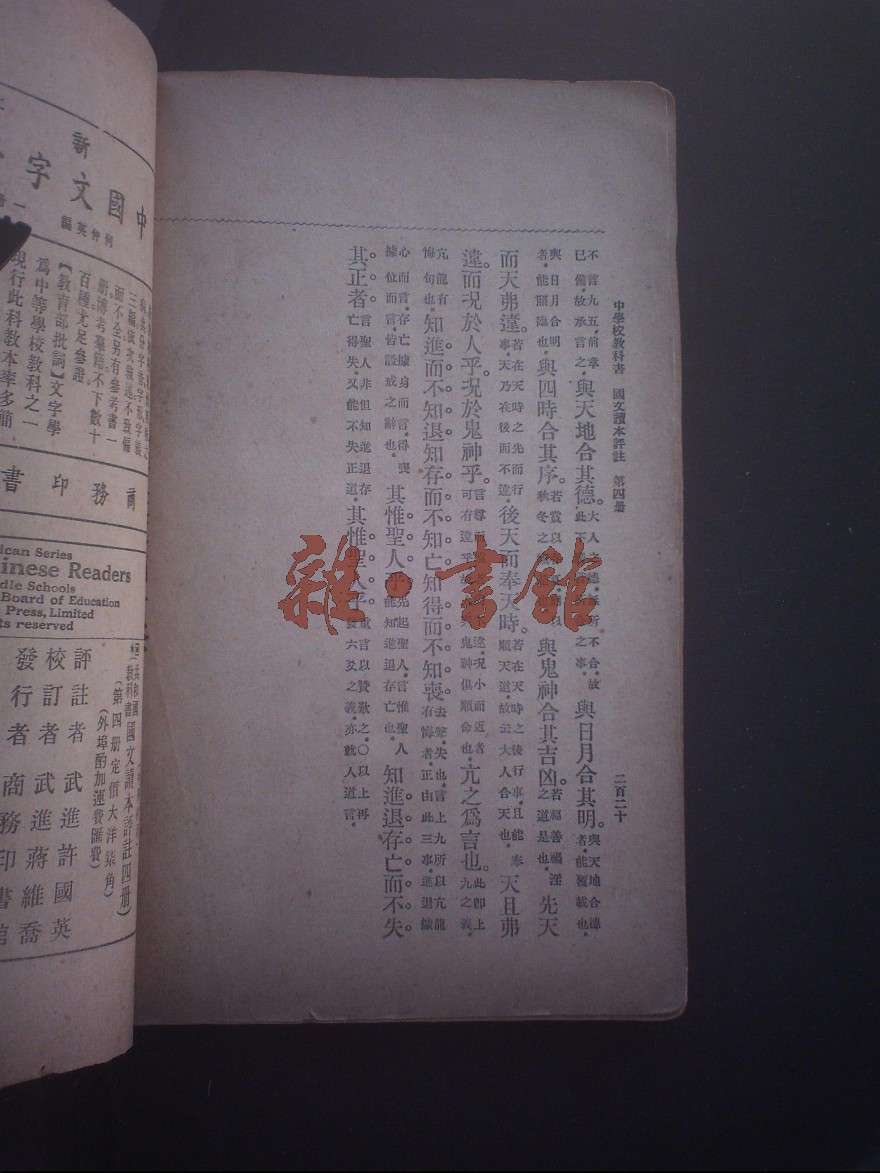 中學校教科書 國文讀本評註 第四册 二百二十
不言九五.前章已備.故承言之.與天地合其德。大人之德.無所不合.故 與日月合其明。與天地合德者.能覆載也.
與日月合明者.能照臨也.與四時合其序。若賞以 與鬼神合其吉凶。若福善禍淫之道是也.先天
而天弗違。若在天時之先而行事.天乃在後而不違.後天而奉天時。若在天時之後行事.且能奉順天道.故云大人合天也.天且弗
違。而況於人乎。況於鬼神乎。言尊而 違.況小而近者可有違乎 鬼神俱順命也.亢之爲言也。此卽上九之義.
亢龍有悔句也.知進而不知退。知存而不知亡。知得而不知喪。去聲.失也.言上九所以亢龍有悔者.正由此三事.進退據
心而言.存亡據身而言.得喪據位而言.皆設戒之辭也.其惟聖人乎。先起聖人.言惟聖人能知進退存亡也.知進退存亡。而不失
其正者。言聖人非但知進退存亡得失.又能不失正道.其惟聖人乎。重言以贊歎之.〇以上再發六爻之義.亦就人道言.
新
中國文字
何仲英編
三編.依次敍述.不致偏
而不全.另有參考書一
册.博考羣籍.不下數十
百種.尤足參證.
【教育部批詞】文字學
爲中等學校教科之一
現行此科教本率多簡
商務印書
ican Series
inese Readers
dle Schools
Board of Education
Press, Limited
ts reserved
共和國教科書國文讀本評註四册)
(第四册定價大洋柒角)
(外埠酌加運費匯費)
評註者 武進許國英
校訂者 武進蔣維喬
發行者 商務印書館
雜·書館